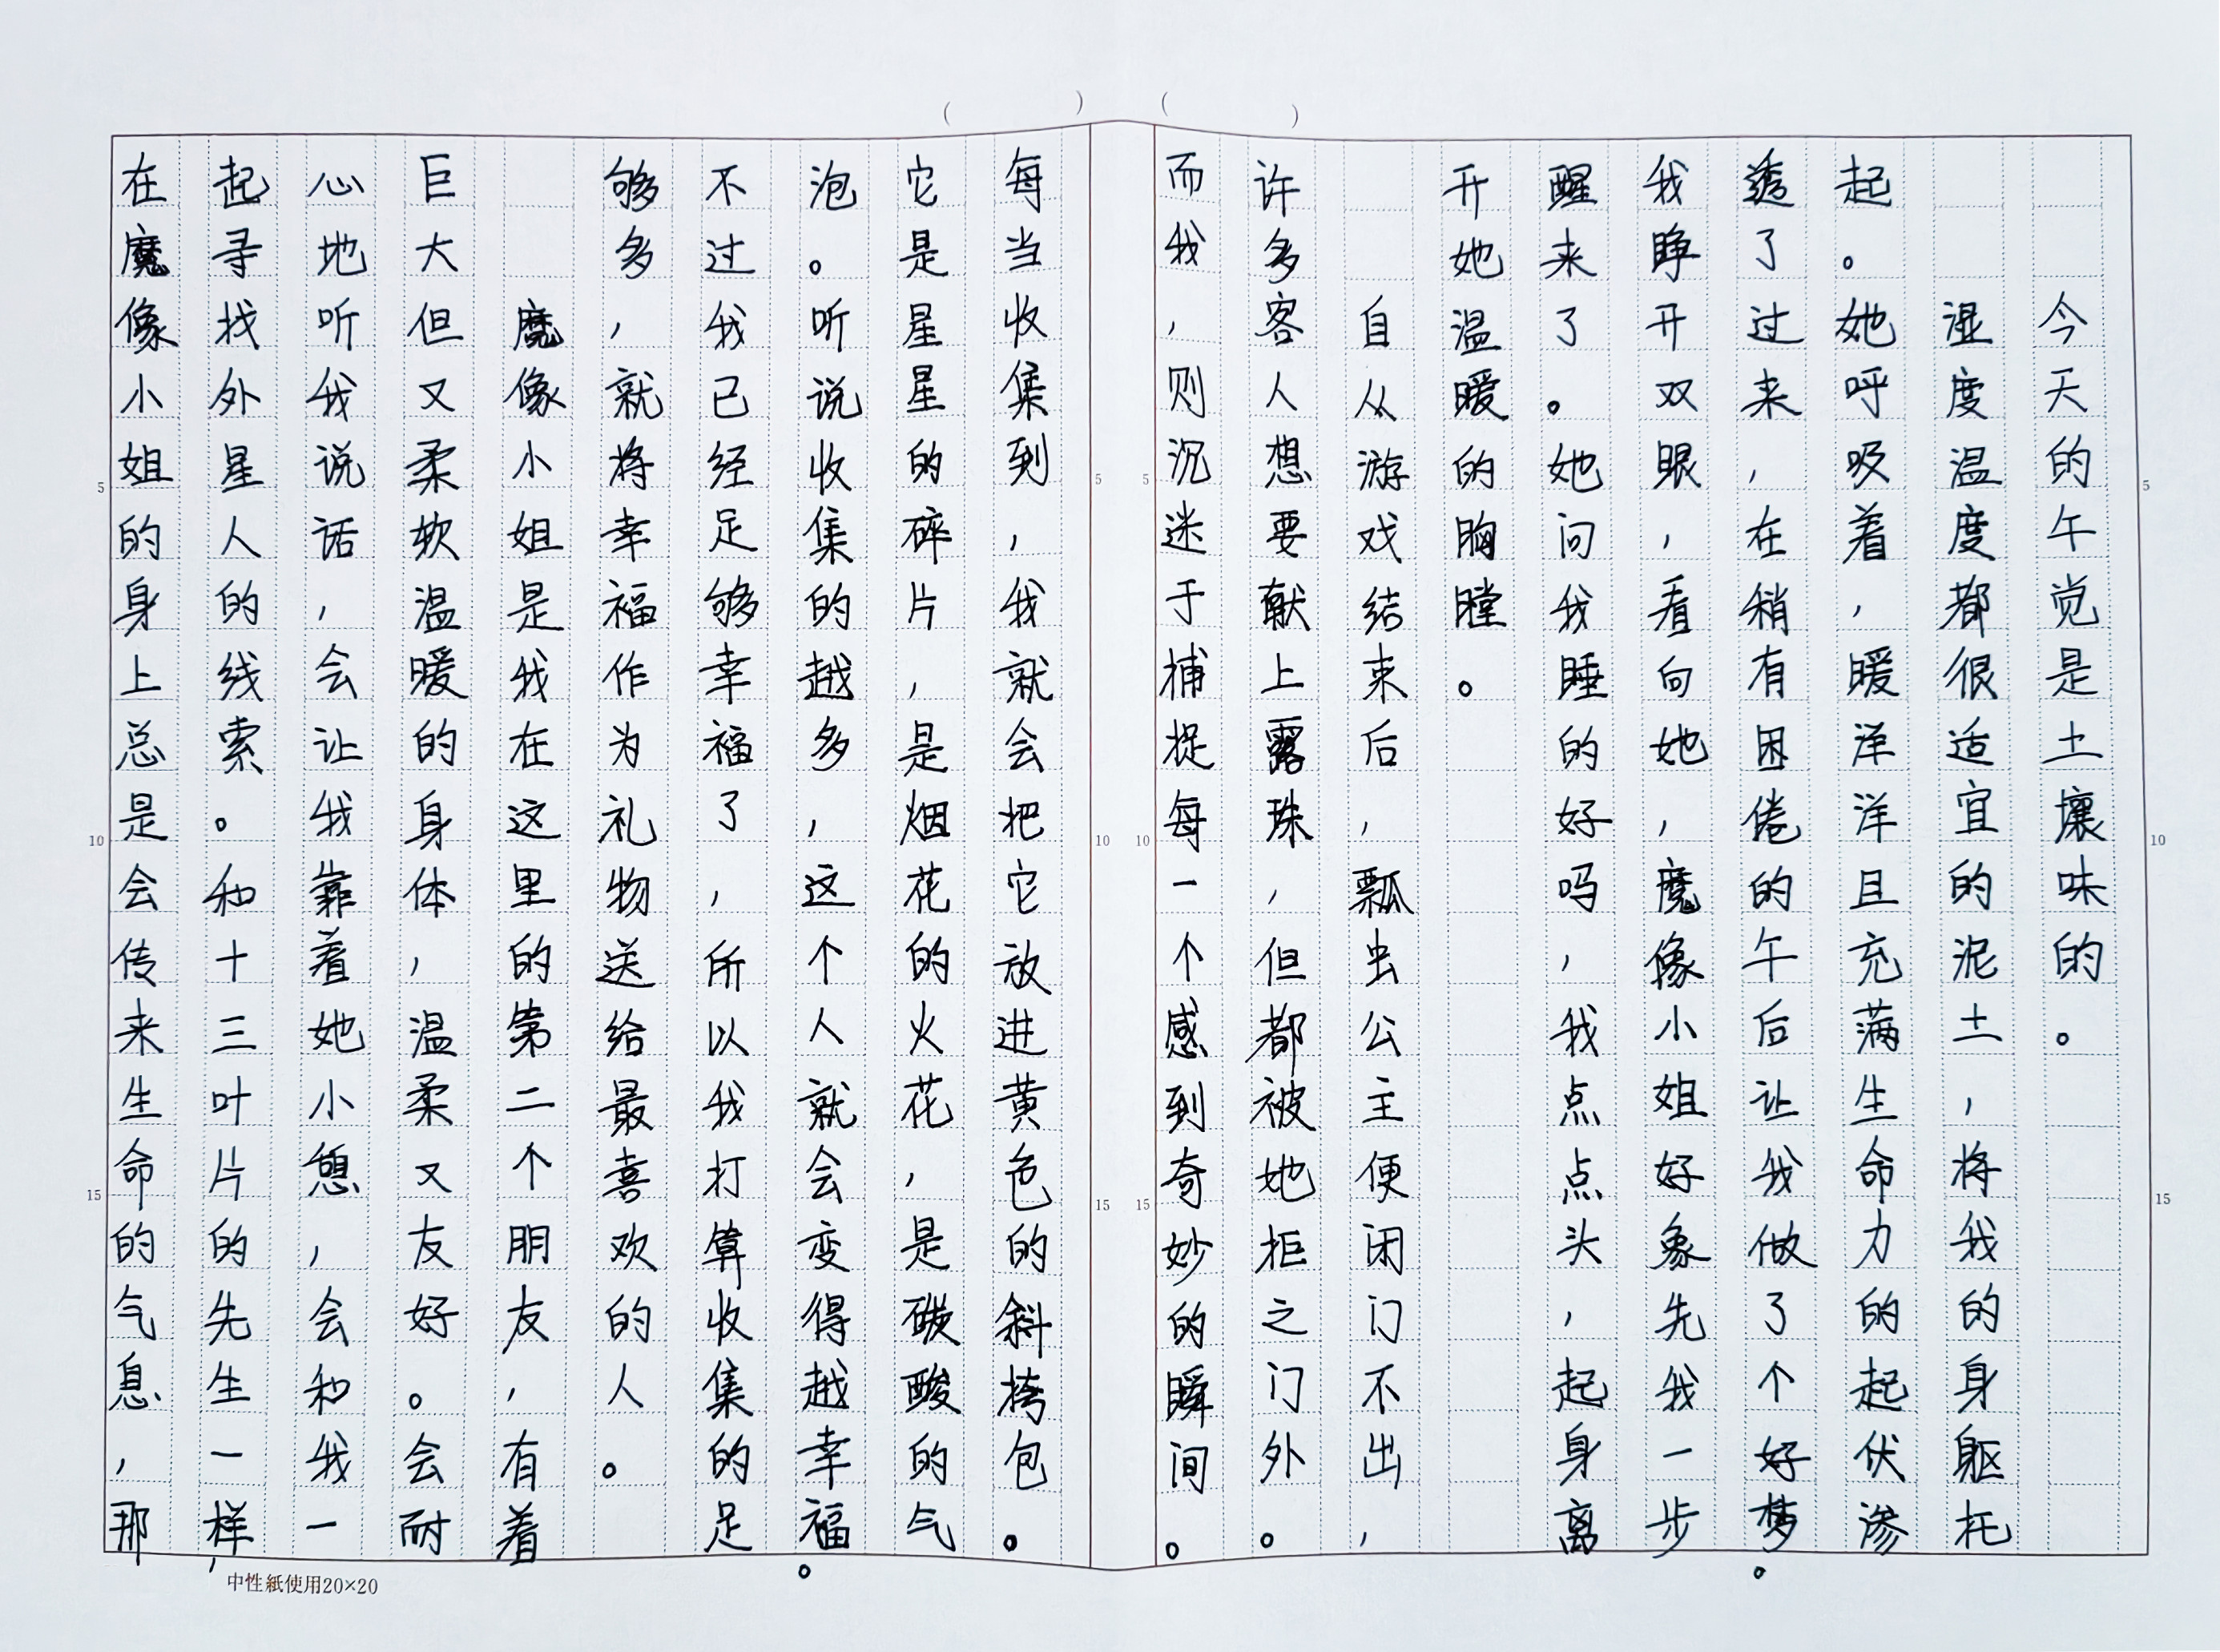 今天的午觉是土壤味的。
湿度温度都很适宜的泥土，将我的身躯托
起。她呼吸着，暖洋洋且充满生命力的起伏渗
透了过来，在稍有困倦的午后让我做了个好梦。
我睁开双眼，看向她，魔像小姐好象先我一步
醒来了。她问我睡的好吗，我点点头，起身离
开她温暖的胸膛。
自从游戏结束后，瓢虫公主便闭门不出，
许多客人想要献上露珠，但都被她拒之门外。
而我，则沉迷于捕捉每一个感到奇妙的瞬间。
每当收集到，我就会把它放进黄色的斜挎包。
它是星星的碎片，是烟花的火花，是碳酸的气
泡。听说收集的越多，这个人就会变得越幸福。
不过我已经足够幸福了，所以我打算收集的足
够多，就将幸福作为礼物送给最喜欢的人。
魔像小姐是我在这里的第二个朋友，有着
巨大但又柔软温暖的身体，温柔又友好。会耐
心地听我说话，会让我靠着她小憩，会和我一
起寻找外星人的线索。和十三叶片的先生一样，
在魔像小姐的身上总是会传来生命的气息，那
（　）
（　）
5
10
15
5
10
15
5
10
15
5
10
15
中性紙使用20×20